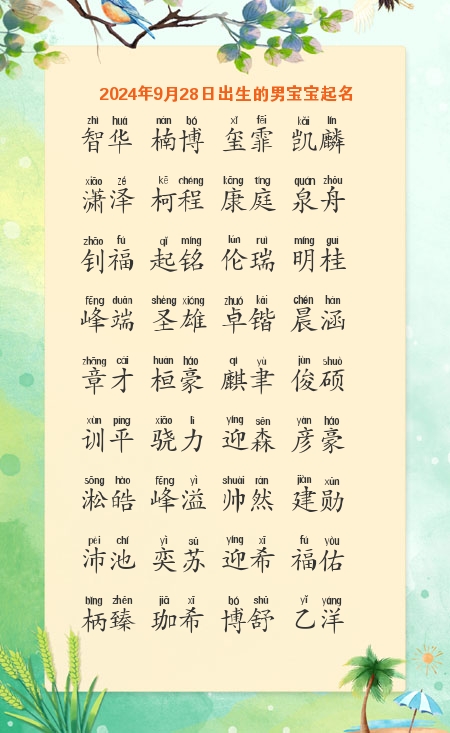 2024年9月28日出生的男宝宝起名
zhì huá nán bó xǐ fēi kǎi lín
智华 楠博 玺霏 凯麟
xiāo zé kē chéng kāng tíng quán zhōu
潇泽 柯程 康庭 泉舟
zhāo fú qǐ míng lún ruì míng guì
钊福 起铭 伦瑞 明桂
fēng duān shèng xióng zhuó kǎi chén hán
峰端 圣雄 卓锴 晨涵
zhāng cái huán háo qí yù jùn shuò
章才 桓豪 麒聿 俊硕
xùn píng xiāo lì yíng sēn yàn háo
训平 骁力 迎森 彦豪
sōng hào fēng yì shuài rán jiàn xūn
淞皓 峰溢 帅然 建勋
pèi chí yì sū yíng xī fú yòu
沛池 奕苏 迎希 福佑
bǐng zhēn jiā xī bó shū yǐ yáng
柄臻 珈希 博舒 乙洋